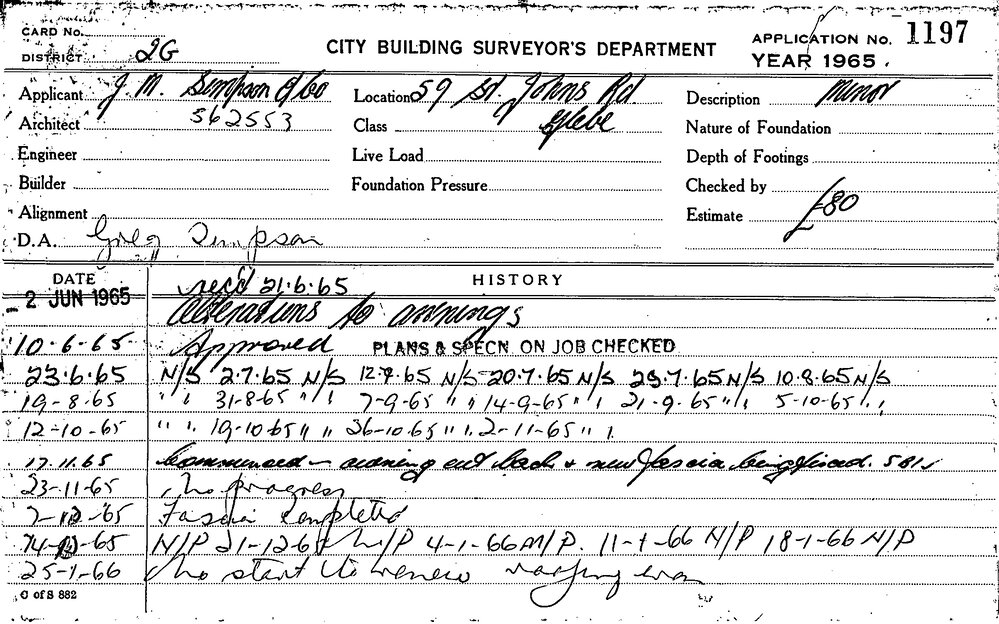 CARD No.
DISTRICT 2G
CITY BUILDING SURVEYOR'S DEPARTMENT
APPLICATION No. 1197
YEAR 1965.
Applicant J. M. Simpson & Co
Location 59 St. Johns Rd
Description Minor
Architect 562553
Class Glebe
Nature of Foundation
Engineer
Live Load
Depth of Footings
Builder
Foundation Pressure
Checked by
Alignment
Estimate £80
D.A. Greg Simpson
DATE
HISTORY
2 JUN 1965 rec'd 21.6.65
Alterations to awnings
10-6-65 Approved PLANS & SPECN. ON JOB CHECKED
23.6.65 N/S 2.7.65 N/S 12.7.65 N/S 20.7.65 N/S 29.7.65 N/S 10.8.65 N/S
19-8-65 " " 31-8-65 " " 7-9-65 " " 14-9-65 " " 21-9-65 " " 5-10-65 " "
12-10-65 " " 19-10-65 " " 26-10-65 " " 2-11-65 " "
17.11.65 Commenced - awning cut back & new fascia being fixed.
23-11-65 No progress
7-12-65 Fascia completed
14-12-65 N/P 21-12-65 N/P 4-1-66 N/P. 11-1-66 N/P 18-1-66 N/P
25-1-66 No start to renew
C of S 882